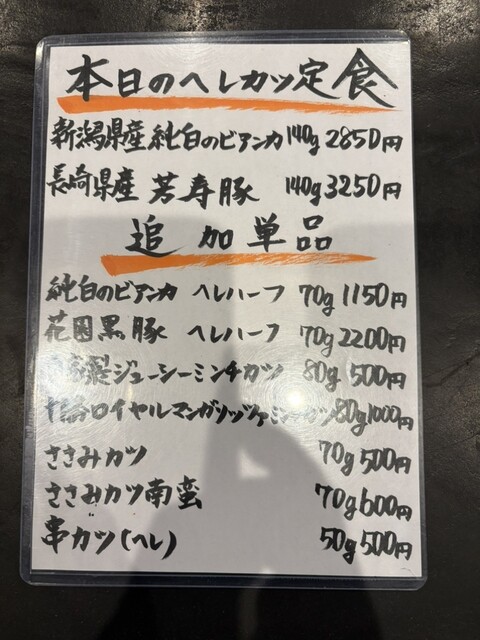 本日のヘレカツ定食
新潟県産 純白のビアンカ 140g 2850円
長崎県産 芳寿豚 140g 3250円
追加単品
純白のビアンカ ヘレハーフ 70g 1150円
花園黒豚 ヘレハーフ 70g 2200円
自家製ジューシーミンチカツ 80g 500円
十勝ロイヤルマンガリッツァミンチカツ 80g 1000円
ささみカツ 70g 500円
ささみカツ南蛮 70g 600円
串カツ(ヘレ) 50g 500円